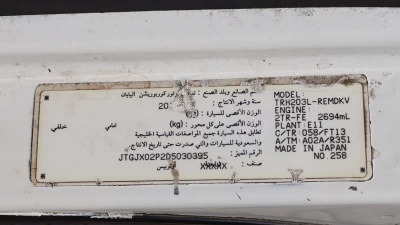 اسم الصانع وبلد الصنع : كوربوريشن اليابان
سنة وشهر الانتاج : 20
الوزن الأقصى للسيارة :
الوزن الأقصى على كل محور : (kg) أمامي خلفي
تطابق هذه السيارة جميع المواصفات القياسية الخليجية
والسعودية للسيارات والتي صدرت حتى تاريخ الانتاج.
الرقم المميز : JTGJX02P2D5030395
صنف :
MODEL:
TRH203L-REMDKV
ENGINE:
2TR-FE 2694mL
PLANT:E11
C/TR:058/FT13
A/TM:A02A/R351
MADE IN JAPAN
NO.258